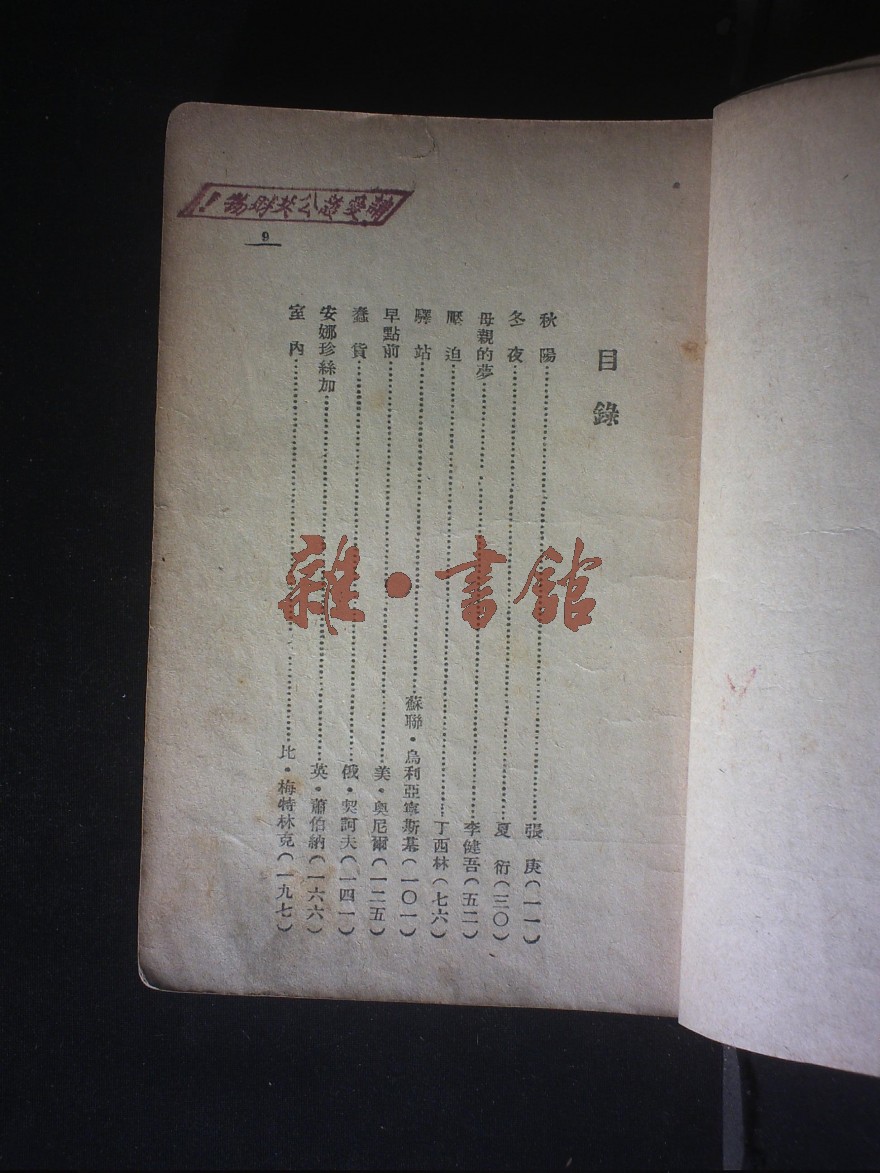 請愛公共財物！
9
目錄
秋陽……張庚(一一)
冬夜……夏衍(三〇)
母親的夢……李健吾(五二)
壓迫……丁西林(七六)
驛站……蘇聯・烏利亞寧斯基(一〇一)
早點前……美・奧尼爾(一二五)
蠢貨……俄・契訶夫(一四一)
安娜珍絲加……英・蕭伯納(一六六)
室內……比・梅特林克(一九七)
雜・書館